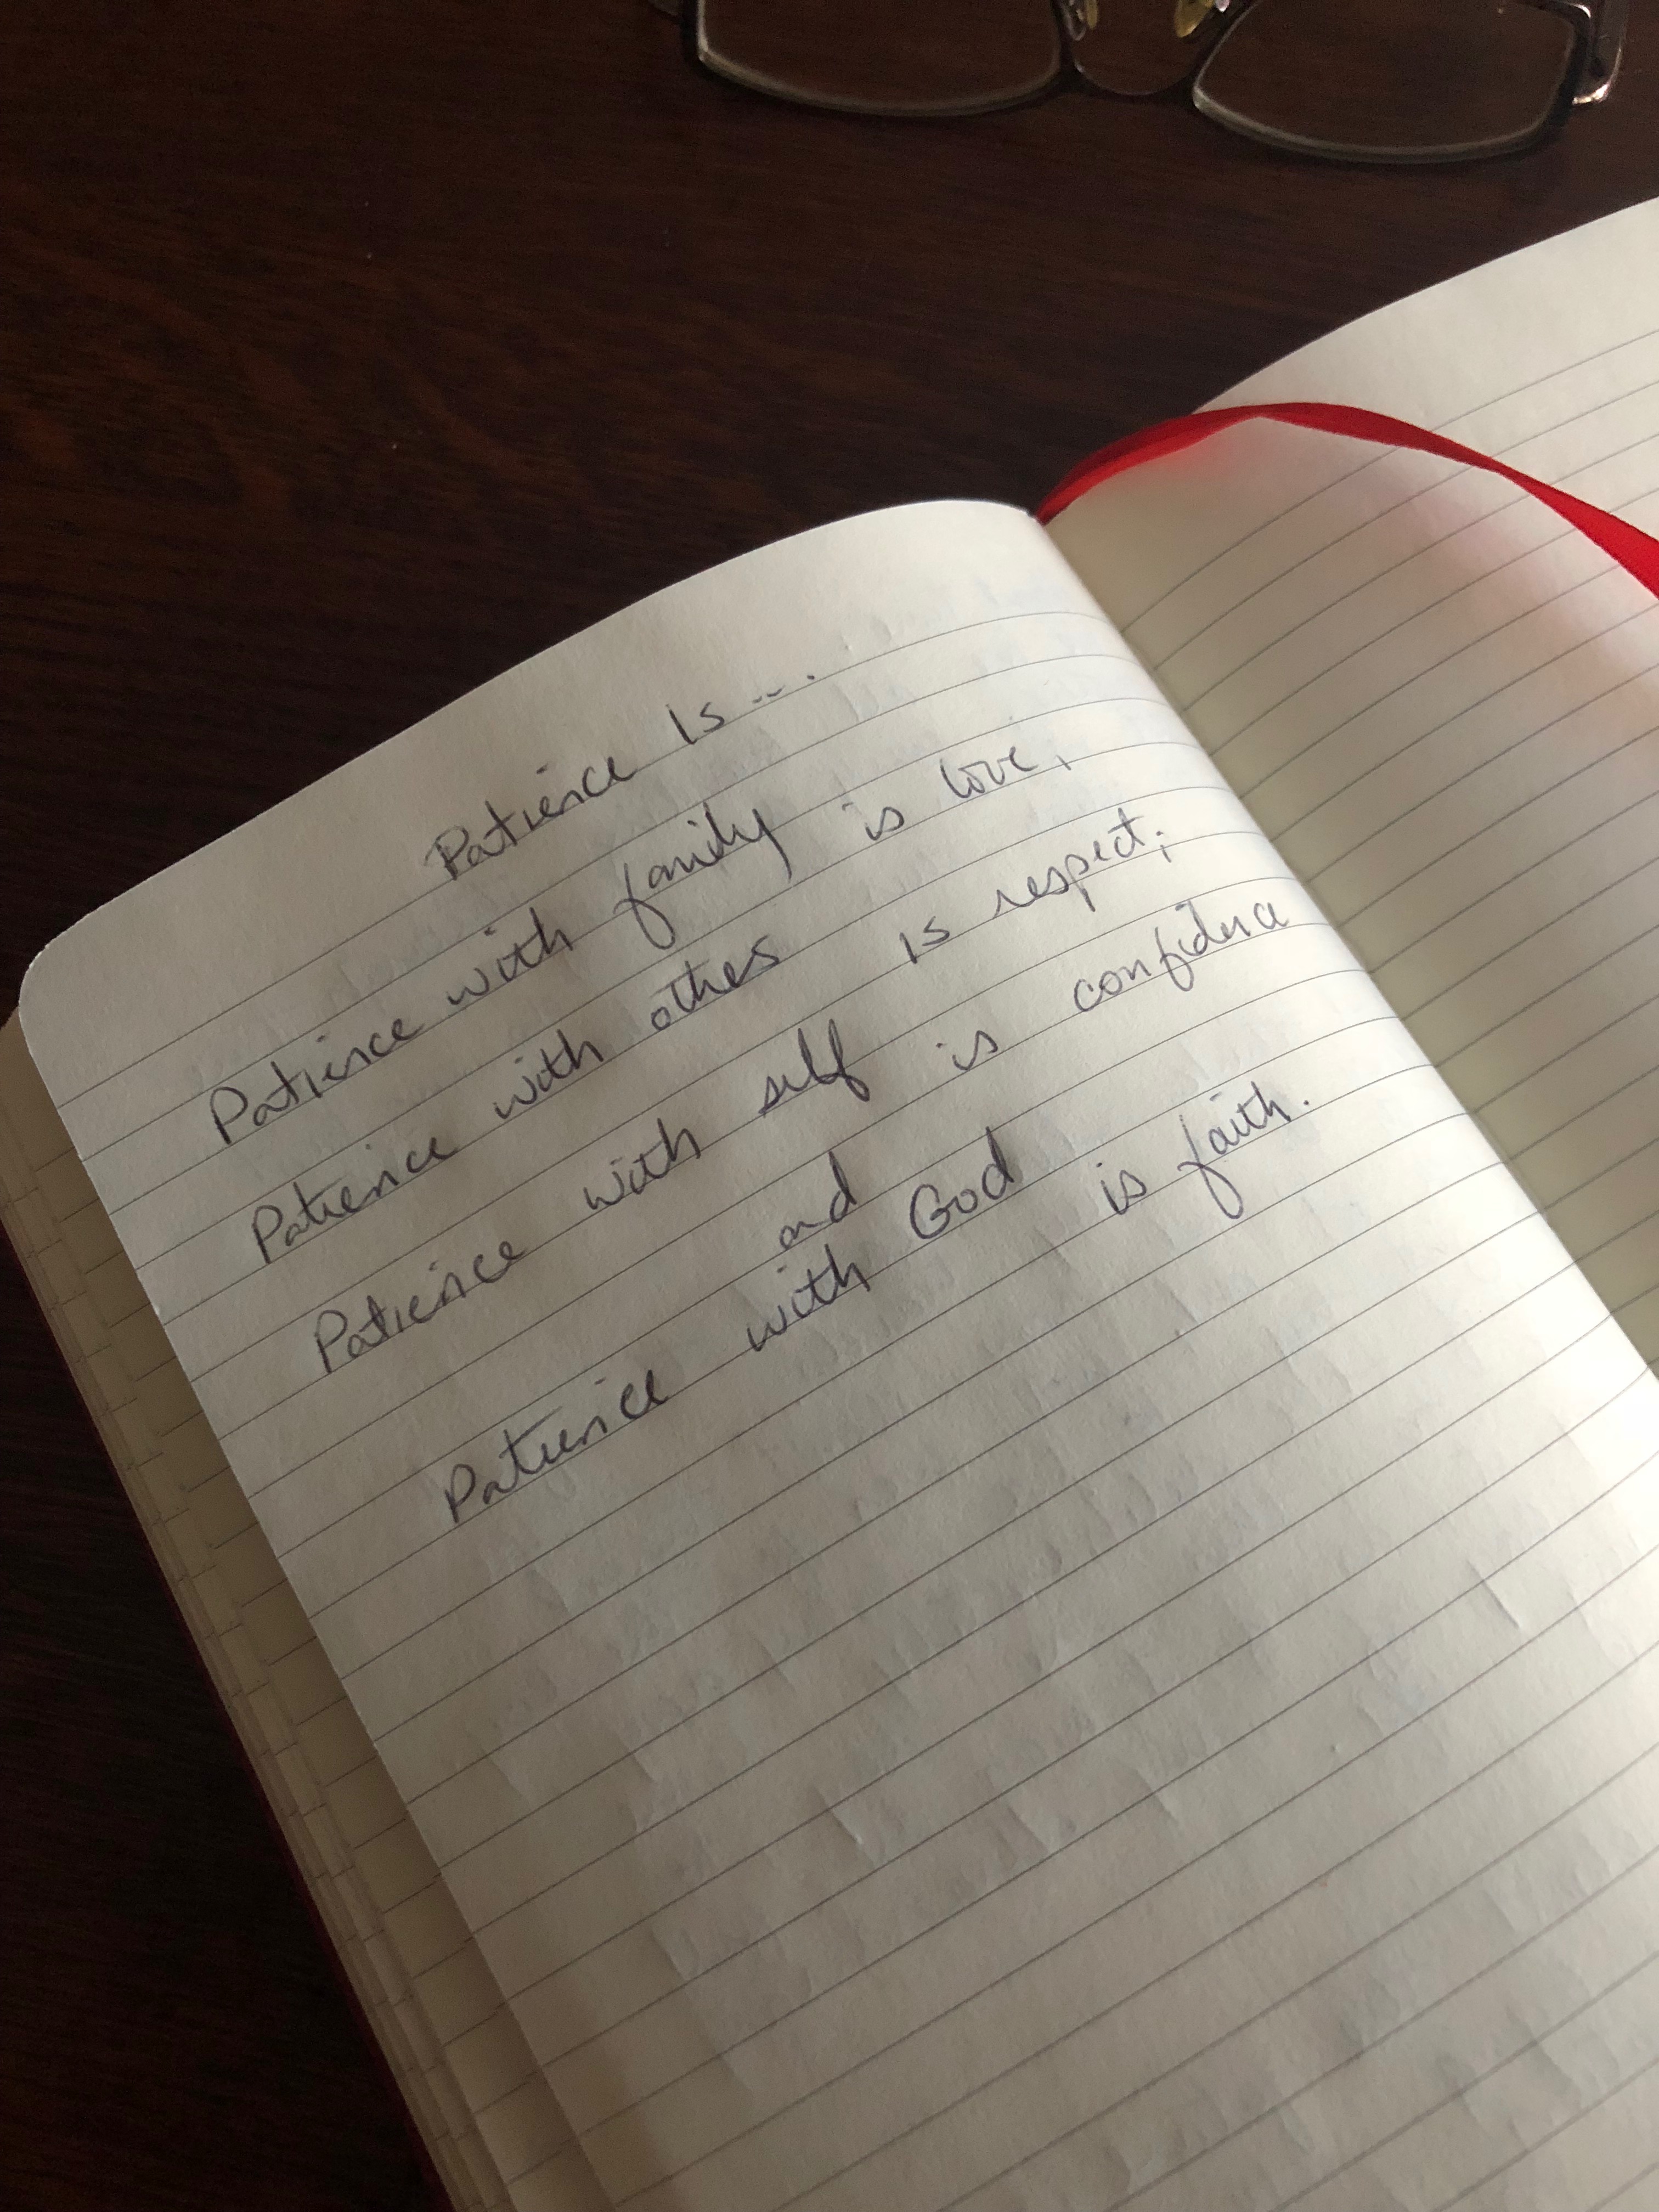 Patience Is....
Patience with family is love,
Patience with others is respect;
Patience with self is confidence
and
Patience with God is faith.